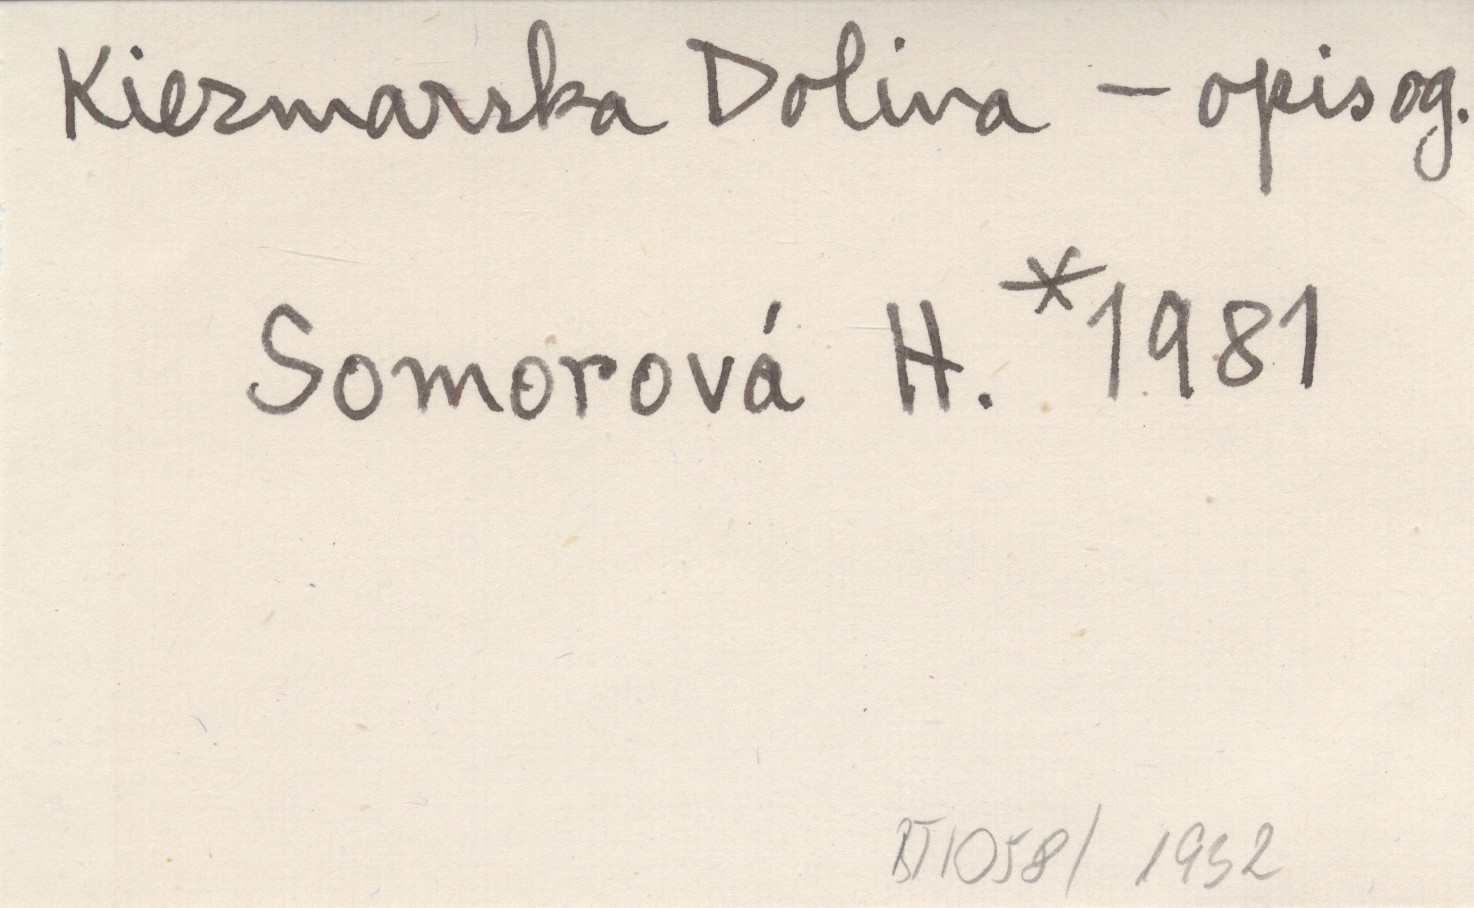 Kiezmarska Dolina – opis og.
Somorová H. *1981
BT1058/ 1932